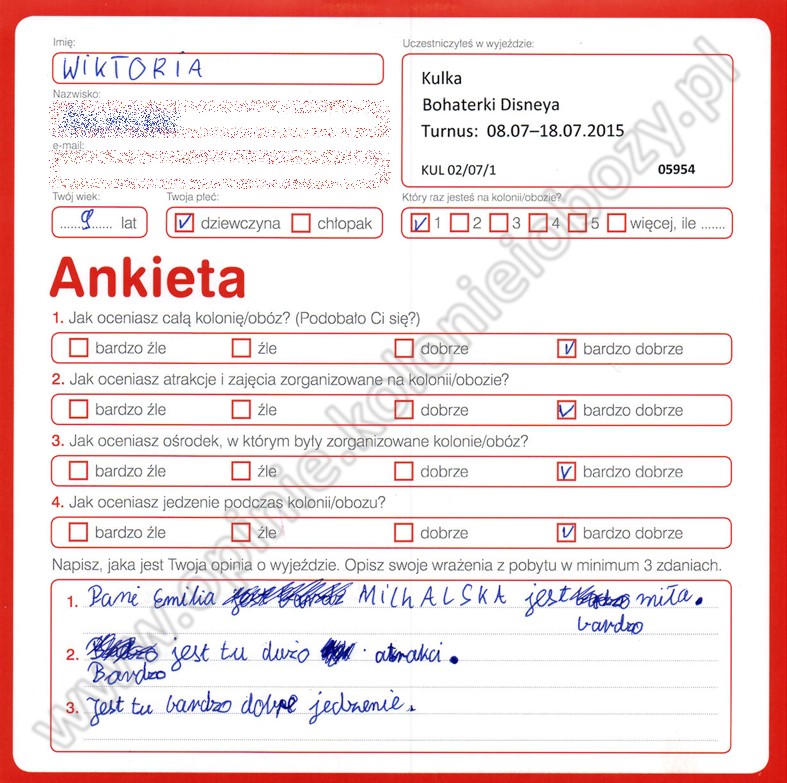 Imię:
WiKTORiA
Uczestniczyłeś w wyjeździe:
Kulka
Bohaterki Disneya
Turnus: 08.07–18.07.2015
KUL 02/07/1 05954
Nazwisko:
e-mail:
Twój wiek:
9 lat
Twoja płeć:
dziewczyna chłopak
Który raz jesteś na kolonii/obozie?
1 2 3 4 5 więcej, ile .......
Ankieta
1. Jak oceniasz całą kolonię/obóz? (Podobało Ci się?)
bardzo źle źle dobrze bardzo dobrze
2. Jak oceniasz atrakcje i zajęcia zorganizowane na kolonii/obozie?
bardzo źle źle dobrze bardzo dobrze
3. Jak oceniasz ośrodek, w którym były zorganizowane kolonie/obóz?
bardzo źle źle dobrze bardzo dobrze
4. Jak oceniasz jedzenie podczas kolonii/obozu?
bardzo źle źle dobrze bardzo dobrze
Napisz, jaka jest Twoja opinia o wyjeździe. Opisz swoje wrażenia z pobytu w minimum 3 zdaniach.
1. Pani Emilia MilhALSKA jest miła.
bardzo
2. jest tu dużo atrakci.
Bardzo
3. Jest tu bardzo dobre jedzenie.
www.opinie.kolonieiobozy.pl